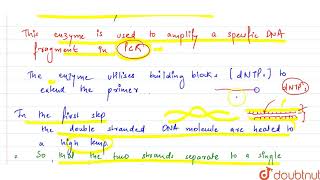 This enzyme is used to amplify a specific DNA
fragment in PCR
The enzyme utilises building blocks [dNTPs] to
extend the primer.
dNTPs
In the first step
the double stranded DNA molecule are heated to
a high temp
So, that the two strands separate to a single
doubtnut